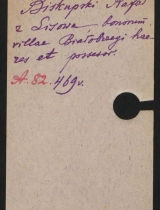 Biskupski Rafał
z Lisowa bonorum
villae Białobrzegi hae-
res et possesor.
A. 82. 469v.